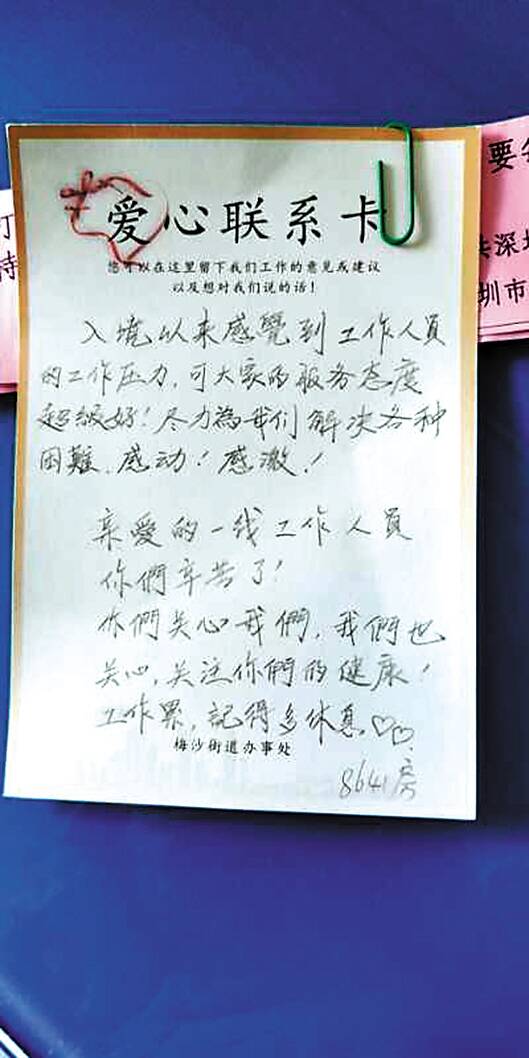 爱心联系卡
您可以在这里留下我们工作的意见或建议
以及想对我们说的话！
入境以来感覺到工作人員
的工作压力，可大家的服务态度
超级好！尽力為我们解决各种
困難、感动！感激！
亲爱的一线工作人員
你們辛苦了！
你們关心我們，我們也
关心，关注你們的健康！
工作累，記得多休息♡♡
梅沙街道办事处
8641房
打
持
要
深圳
圳市